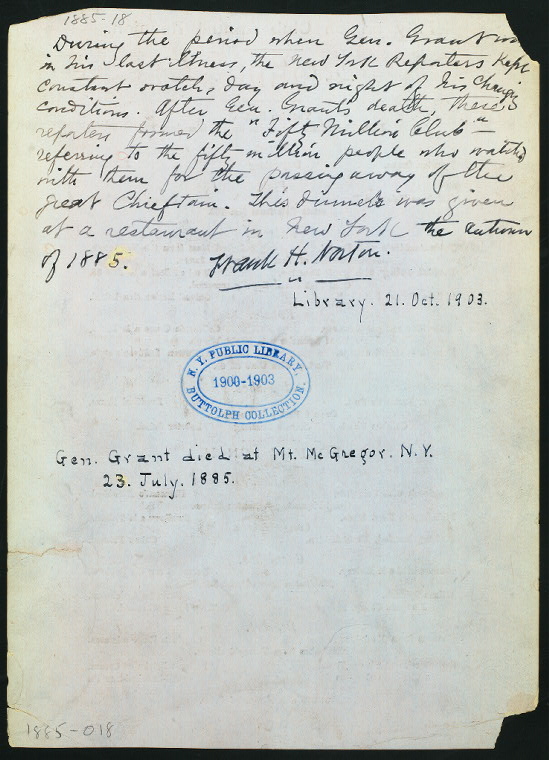 1885-18
During the period when Gen. Grant was
in his last illness, the New York Reporters kept
constant watch, day and night of his changing
conditions. After Gen. Grant's death, these
reporters formed the "Fifty Million Club" —
referring to the fifty million people who watched
with them for the passing away of the
great Chieftain. This dinner was given
at a restaurant in New York the autumn
of 1885. Frank H. Norton.
Library. 21. Oct. 1903.
N. Y. PUBLIC LIBRARY,
1900-1903
BUTTOLPH COLLECTION.
Gen. Grant died at Mt. McGregor. N.Y.
23. July. 1885.
1885-018